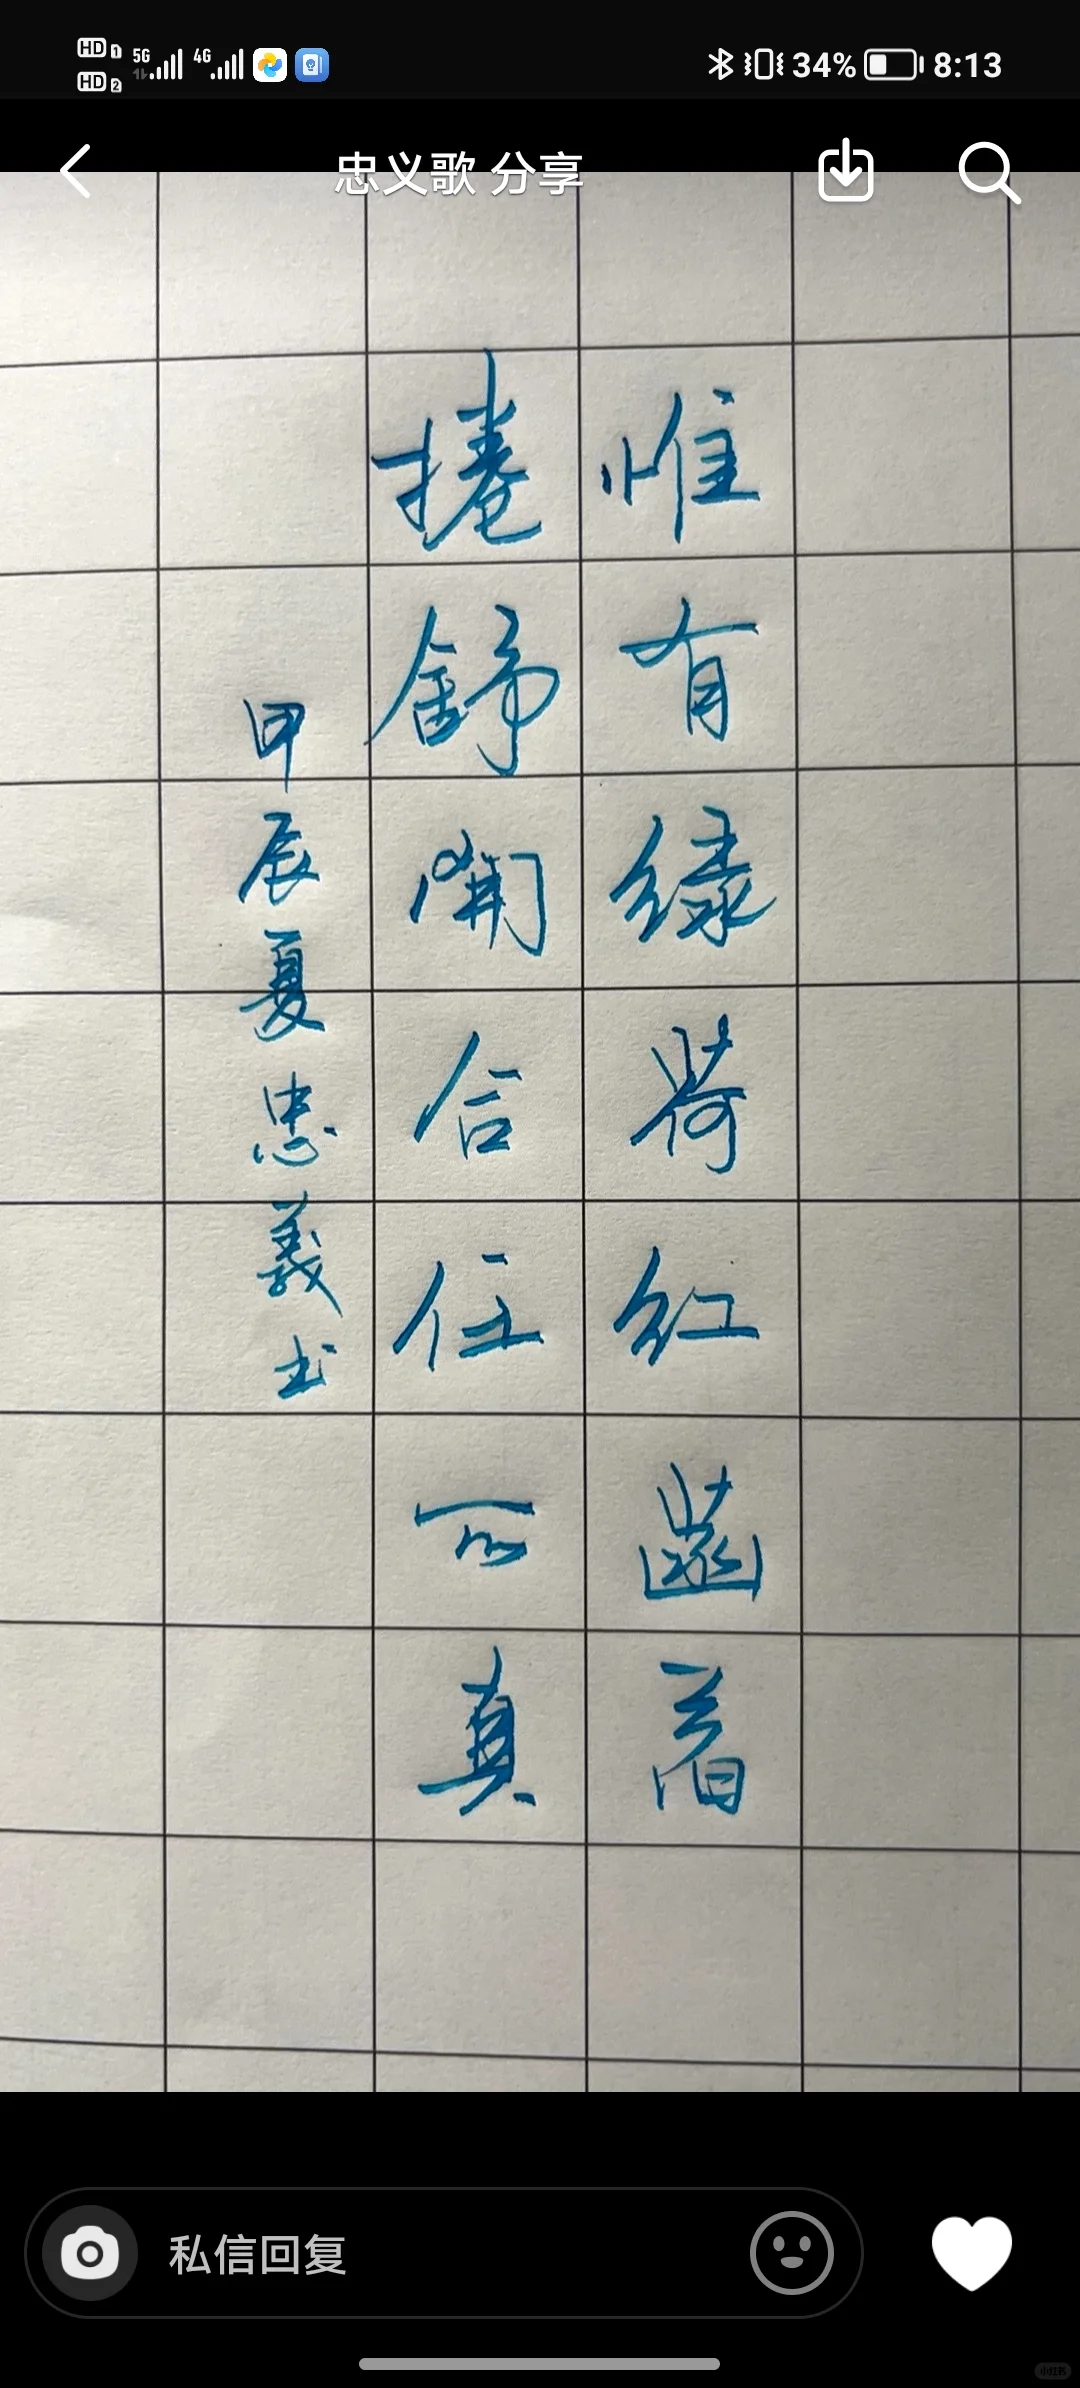 HD 1 5G 4G 34% 8:13
HD 2
忠义歌 分享
惟有绿荷红菡萏
捲舒開合任天真
甲辰夏忠義书
私信回复
小红书